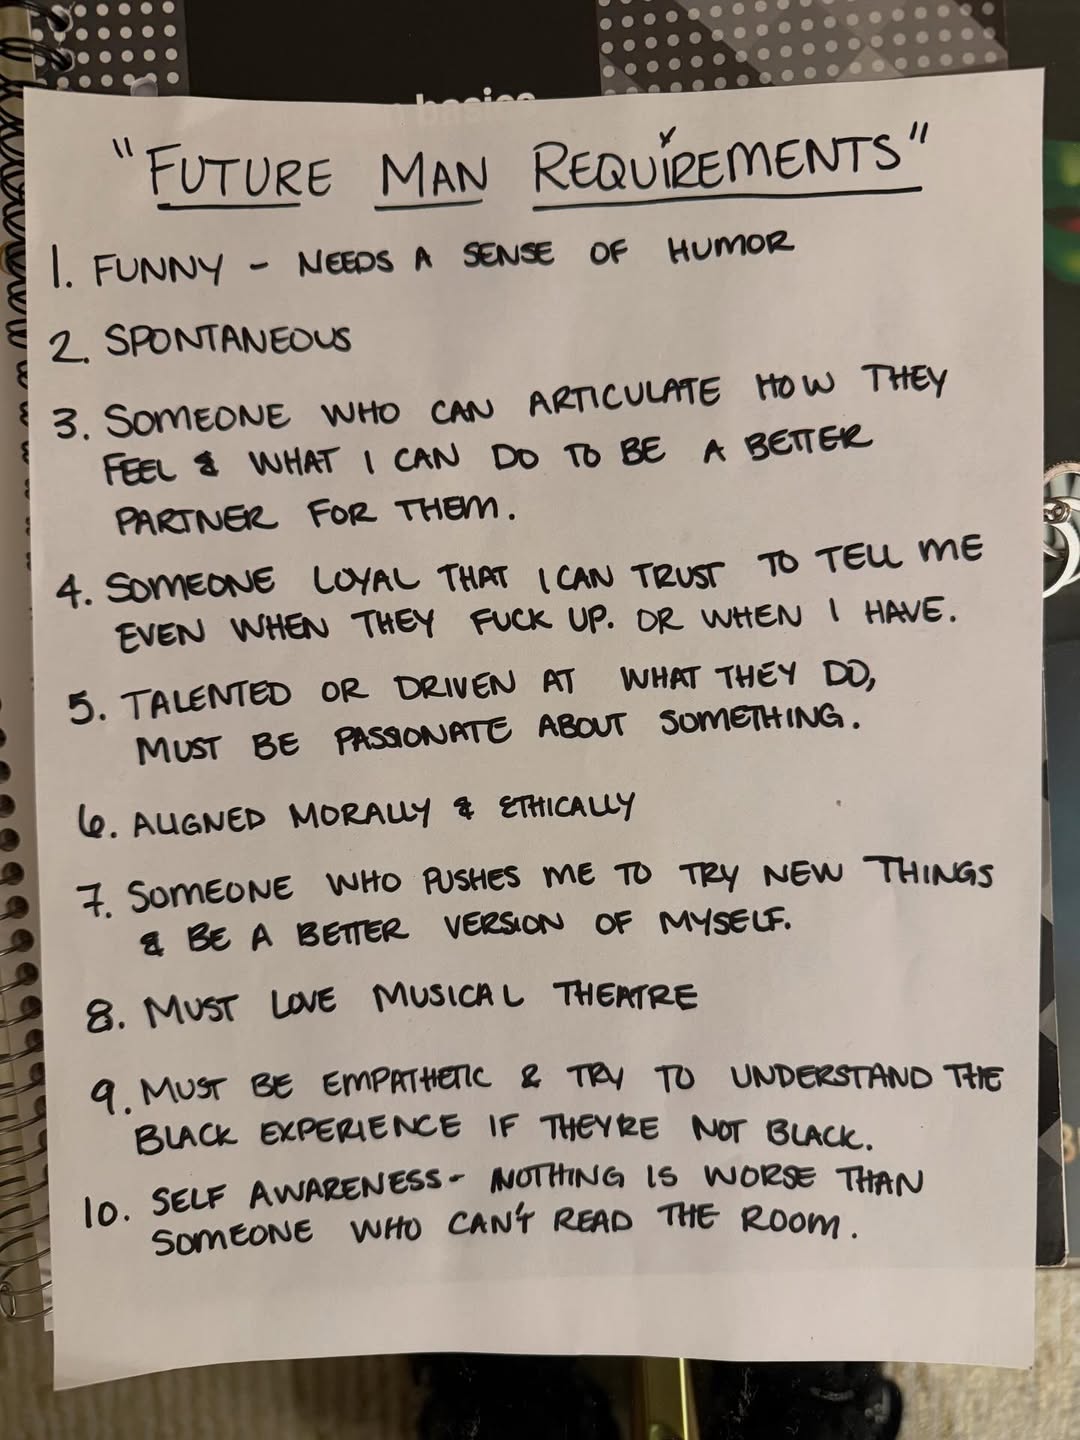 basics
"FUTURE MAN REQUIREMENTS"
1. FUNNY - NEEDS A SENSE OF HUMOR
2. SPONTANEOUS
3. SOMEONE WHO CAN ARTICULATE HOW THEY
FEEL & WHAT I CAN DO TO BE A BETTER
PARTNER FOR THEM.
4. SOMEONE LOYAL THAT I CAN TRUST TO TELL ME
EVEN WHEN THEY FUCK UP. OR WHEN I HAVE.
5. TALENTED OR DRIVEN AT WHAT THEY DO,
MUST BE PASSIONATE ABOUT SOMETHING.
6. ALIGNED MORALLY & ETHICALLY
7. SOMEONE WHO PUSHES ME TO TRY NEW THINGS
& BE A BETTER VERSION OF MYSELF.
8. MUST LOVE MUSICAL THEATRE
9. MUST BE EMPATHETIC & TRY TO UNDERSTAND THE
BLACK EXPERIENCE IF THEY'RE NOT BLACK.
10. SELF AWARENESS - NOTHING IS WORSE THAN
SOMEONE WHO CAN'T READ THE ROOM.